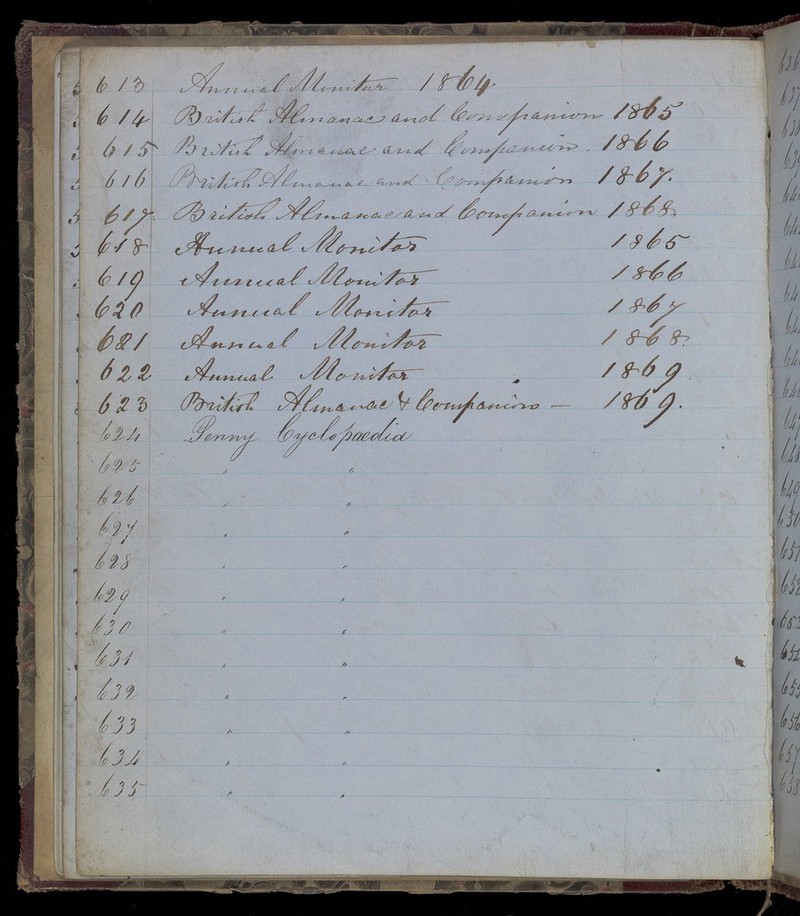 613 Annual Monitor 1864
614 British Almanac and Companion 1865
615 British Almanac and Companion. 1866
616 British Almanac and Companion 1867.
617 British Almanac and Companion 1868.
618 Annual Monitor 1865
619 Annual Monitor 1866
620 Annual Monitor 1867
621 Annual Monitor 1868.
622 Annual Monitor 1869
623 British Almanac & Companion — 1869.
624 Penny Cyclopaedia
625 " "
626 " "
627 " "
628 " "
629 " "
630 " "
631 " "
632 " "
633 " "
634 " "
635 " "